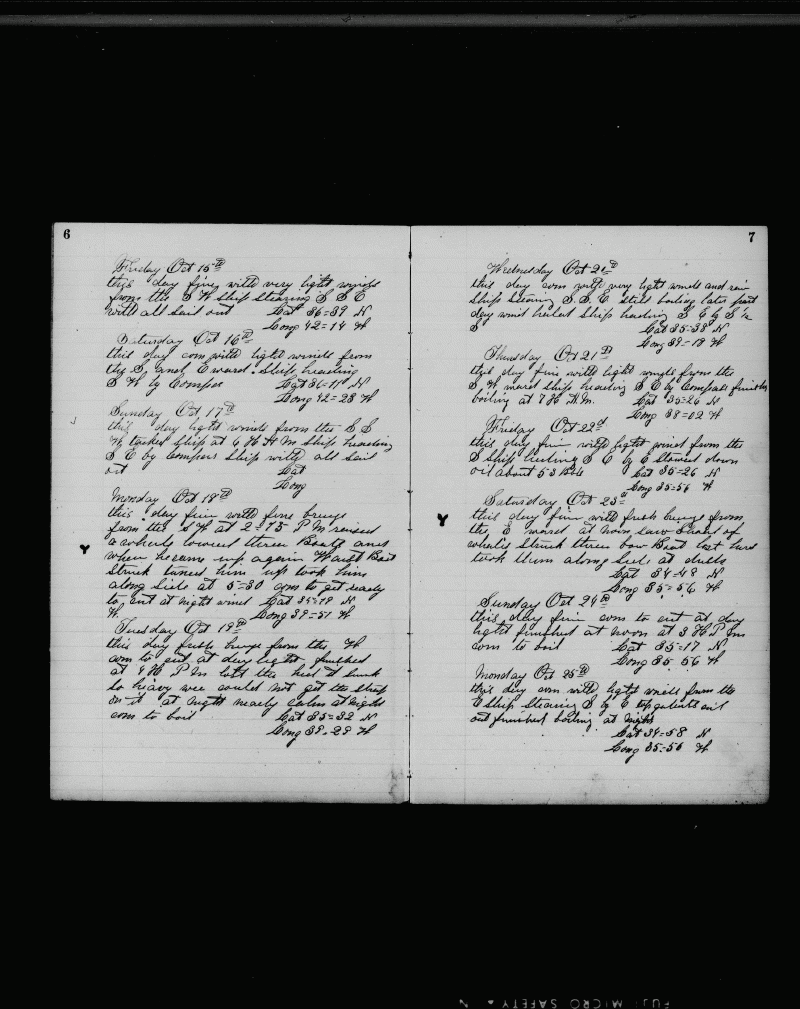 6
Friday Oct 15th
this day fine with very light winds
from the S W Ship Stearing S S E
with all Sail out Lat 36=39 N
Long 42=14 W
Saturday Oct 16th
this day com with light winds from
the S, and E ward. Ship heading
S W by Compas Lat 36=11 N
Long 42=28 W
Sunday Oct 17th
this day light winds from the S S
W tacked Ship at 6 H A M Ship heading
S E by Compas Ship with all Sail
out Lat
Long
Monday Oct 18th
this day fine with fine breeze
from the S W at 2=15 P M raised
a whale lowered three Boats and
when he came up again Waist Boat
Struck turned him up took him
along Side at 5=30 com to get ready
to cut at night wind Lat 35=19 N
W. Long 39=51 W
Tuesday Oct 19th
this day fresh breeze from the W
com to cut at day light finished
at 4 H P M lost the hed it sunk
So heavy wee could not get the strap
on it at night nearly calm at eight
com to boil Lat 35=32 N
Long 39=29 W
7
Wednesday Oct 20th
this day com with very light winds and rain
Ship Stearing S. S. E. Still boiling later part
day wind hauled Ship heading S E by S 1/2
S Lat 35=38 N
Long 39=18 W
Thursday Oct 21th
this day fine with light winds from the
S, W ward ship heading S E by Compass finished
boiling at 7 H A.M. Lat 35=26 N
Long 38=02 W
Friday Oct 22d
this day fine with light wind from the
S Ship heding S E by E Stowed down
oil about 53 Bbls Lat 35=26 N
Long 35=56 W
Saturday Oct 23d
this day fine with fresh breeze from
the E ward at noon saw Shoal of
whales Struck three bow Boat lost hers
took them along Side at dusk
Lat 34=48 N
Long 35=56 W
Sunday Oct 24th
this day fine com to cut at day
light finished at noon at 3 H P M
com to boil Lat 35=17 N
Long 35 56 W
Monday Oct 25th
this day com with light winds from the
E Ship Stearing S by E topgalants sail
out finished boiling at Night
Lat 34=58 N
Long 35=56 W
FUJI MICRO SAFETY